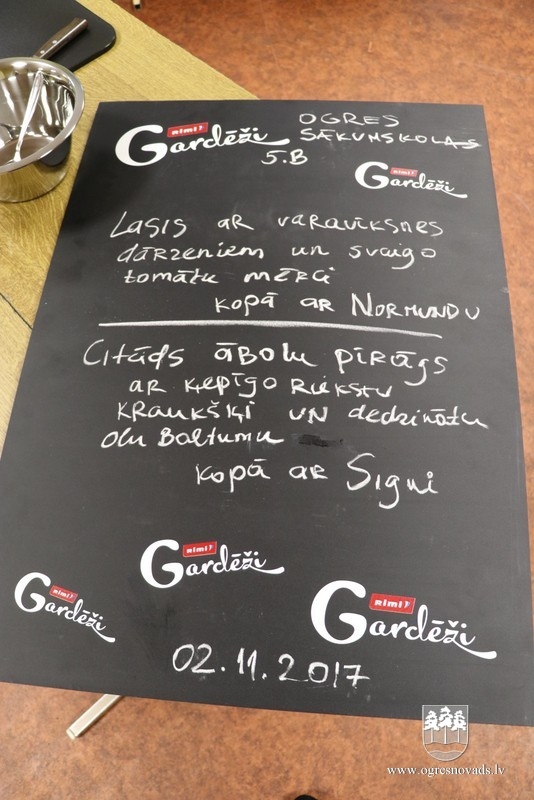 RIMI
Gardēži
OGRES
SĀKUMSKOLAS
5.B
RIMI
Gardēži
Lasis ar varavīksnes
dārzeņiem un svaigo
tomātu mērci
kopā ar Normundu
Citāds ābolu pīrāgs
ar ķepīgo riekstu
kraukšķi un dedzinātu
olu baltumu
kopā ar Signi
RIMI
Gardēži
RIMI
Gardēži
RIMI
Gardēži
02.11.2017
www.ogresnovads.lv